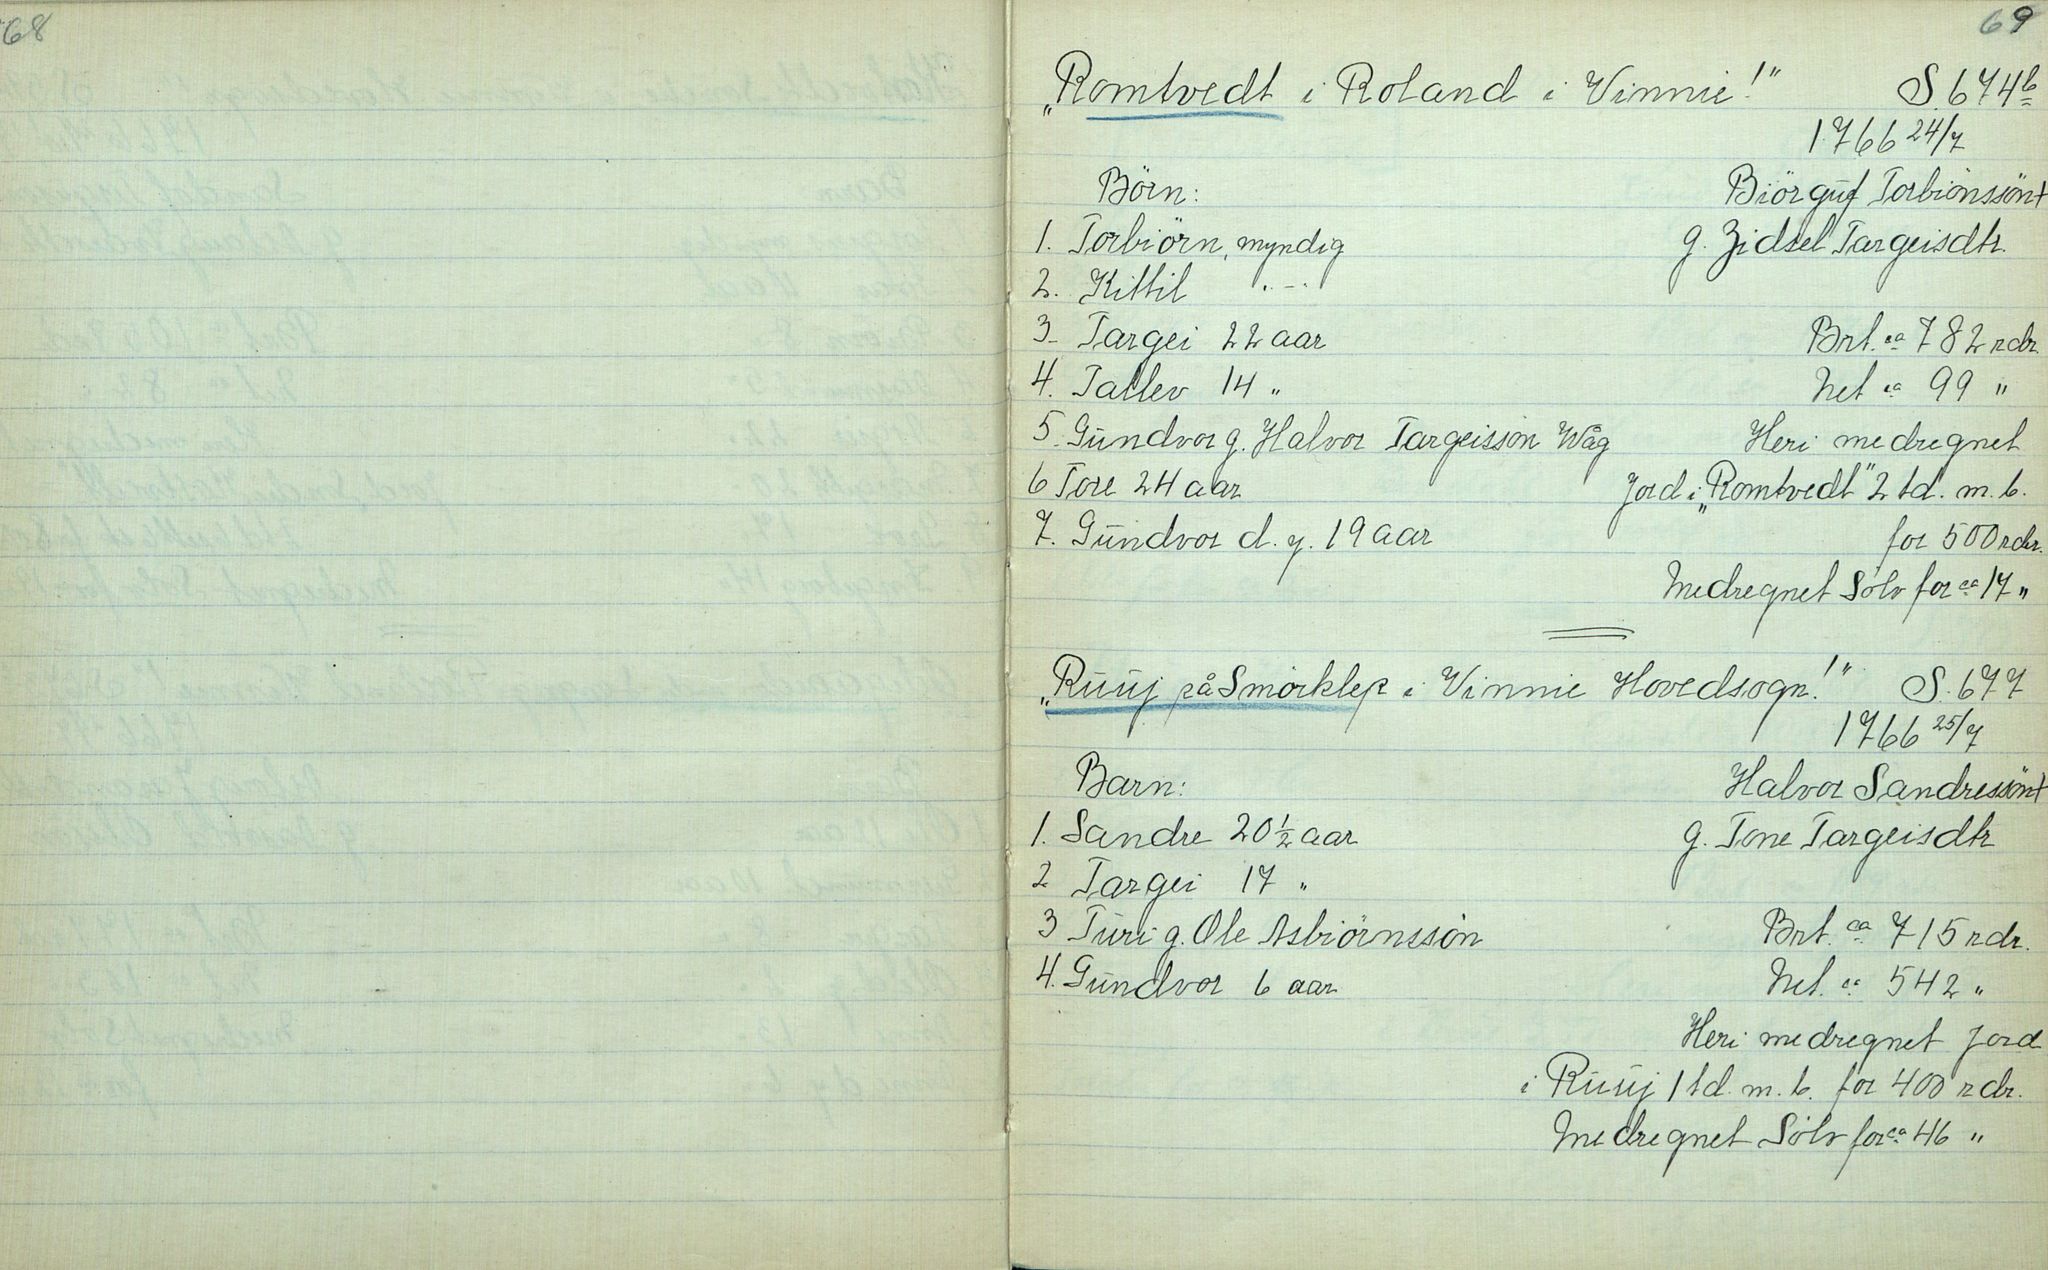 68
69
„Romtvedt i Roland i Vinnie!" S. 674b
1766 24/7
Börn: Biörguf Torbiönssön+
1. Torbiörn, myndig g. Zidsel Targeisdtr.
2. Kittil .-.
3- Targei 22 aar Brt. ca 782 rdr.
4. Tallev 14 " Net ca 99 "
5. Gundvor g. Halvor Targeisson Wåg Heri medregnet
6 Tore 24 aar Jord i „Romtvedt" 2 td. m. b.
7. Gundvor d. y. 19 aar for 500 rdr.
Medregnet Sölv for ca 17 "
„Ruuj på Smörklep i Vinnie Hovedsogn!" S. 677
1766 25/7
Barn: Halvor Sandressön+
1. Sandre 20 1/2 aar g. Tone Targeisdtr
2 Targei 17 "
3 Turi g. Ole Asbiörnssön Brt. ca 715 rdr.
4. Gundvor 6 aar Net. ca 542 "
Heri medregnet Jord
i Ruuj 1 td. m. b. for 400 rdr.
Medregnet Sölv for ca 46 "